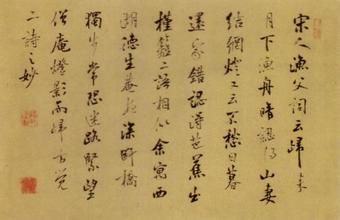 宋人漁父詞云歸來
月下漁舟暗認得山妻
結網燈又云不愁日暮
還家錯認得芭蕉出
槿籬二語相似余寓西
湖德生菴深野橋
獨步常恐迷路緊望
僧庵燈影而歸方覺
二詩之妙